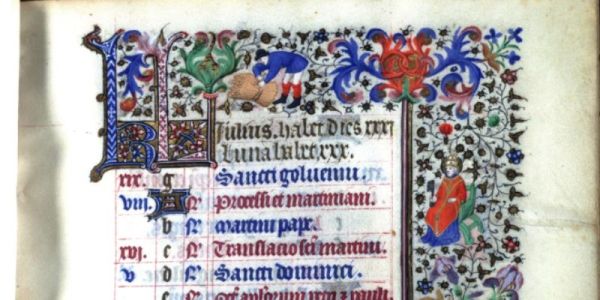 KL
Iulius. habet dies xxxi
luna habet xxx.
xix. g Sancti goluenni.
viii. A Processi et martiniani.
b martini pape.
xvi. c Translacio sci martini.
v d Sancti dominici.
e Oct aplorum petri z pauli.